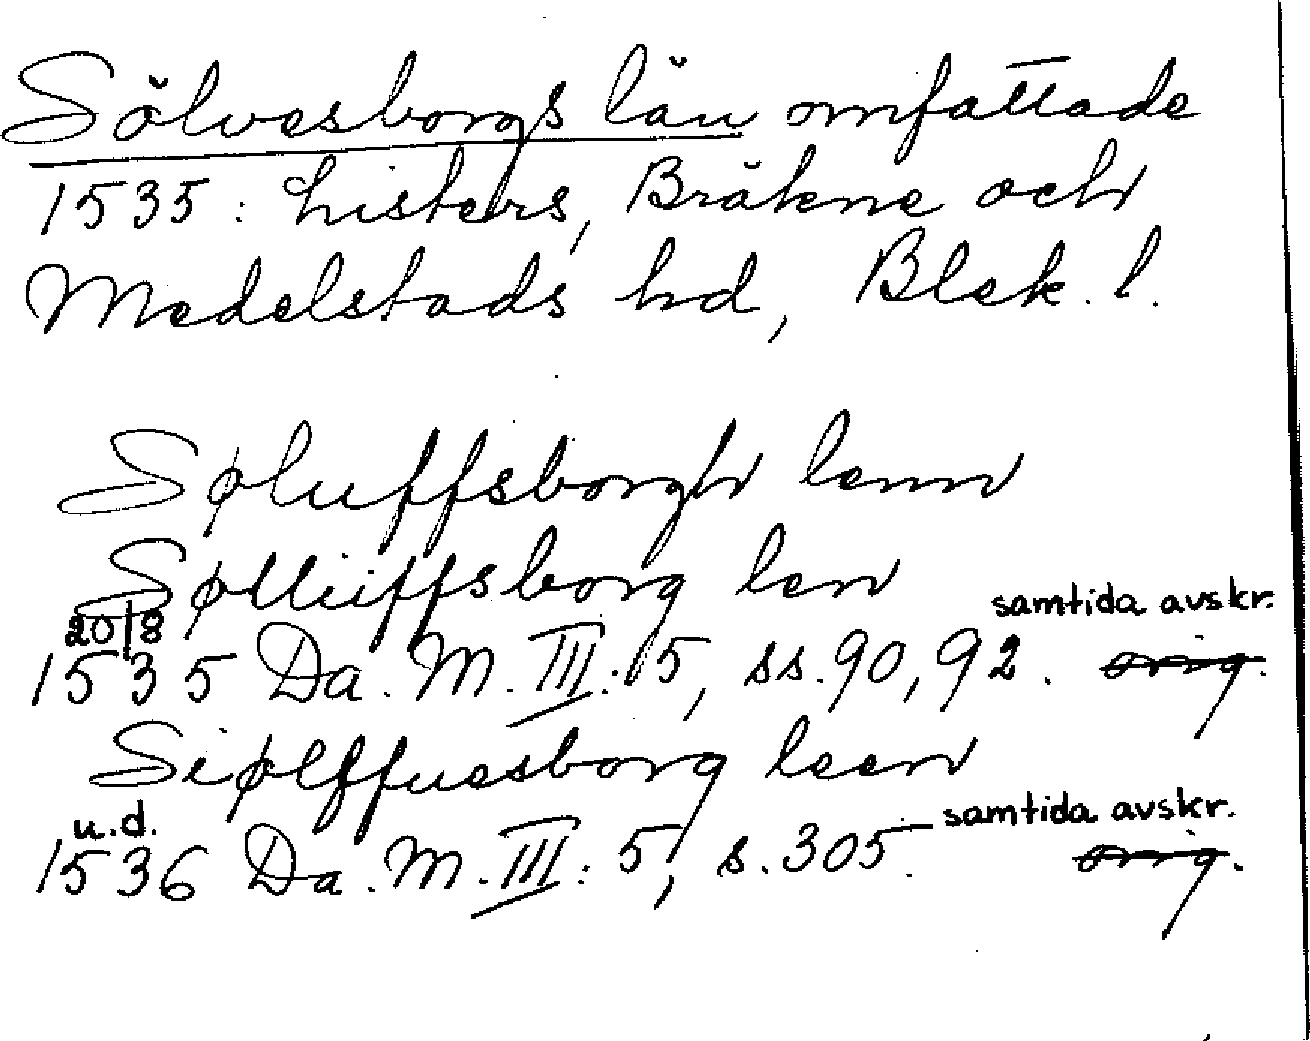 Sölvesborgs län omfattade
1535: Listers, Bräkne och
Medelstads hd, Blek. l.
Søluffsborgh lenn
Sølluffsborg len
20/8 samtida avskr.
1535 Da. M. III: 5, ss. 90, 92. orig.
Siølffuesborg leen
u.d. samtida avskr.
1536 Da. M. III: 5, s. 305. orig.